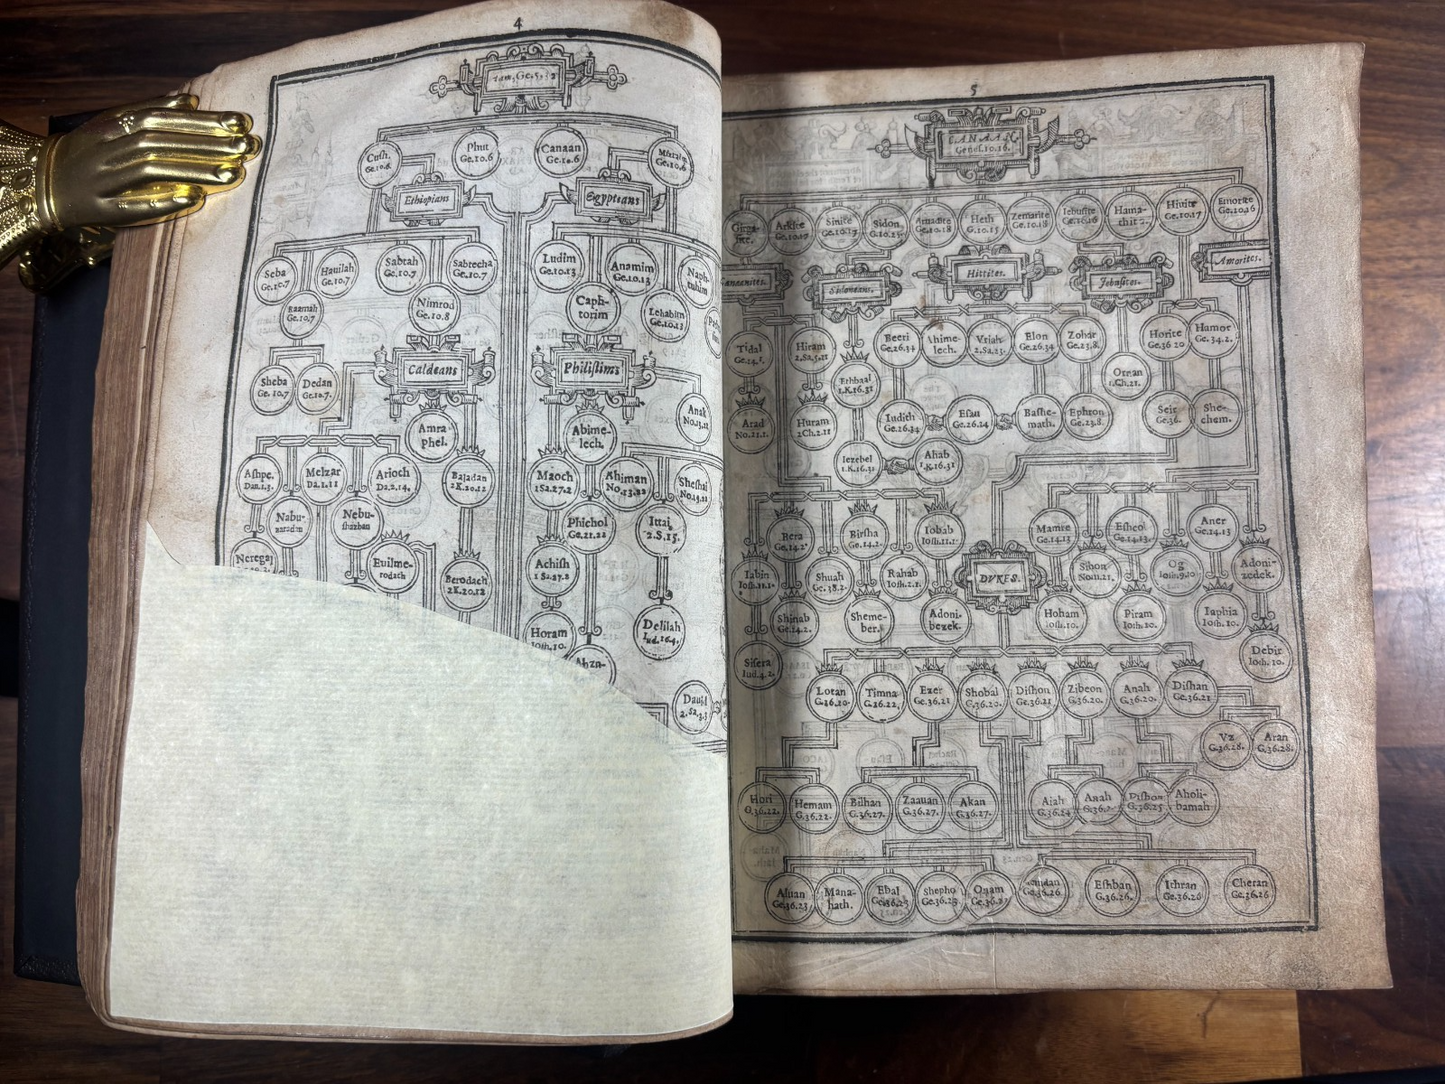 4
Ge. 5. 32
Cush.
Ge.10.6.
Phut
Ge.10.6
Canaan
Ge.10.6
Ge.10.6
Ethiopians
Egyptians
Seba
Ge.10.7
Hauilah
Ge.10.7
Sabtah
Ge.10.7
Sabtecha
Ge.10.7
Ludim
Ge.10.13
Anamim
Ge.10.13
Naph-
tuhim
Raamah
Ge.10.7
Nimrod
Ge.10.8
Caph-
torim
Lehabim
Ge.10.13
Sheba
Ge.10.7
Dedan
Ge.10.7.
Caldeans
Philistims
Amra-
phel.
Abime-
lech.
Anak
No.13.22
Ashpe.
Dan.1.3.
Melzar
Da.1.11
Arioch
Da.2.14.
Baladan
2K.20.12
Maoch
1Sa.27.2
Ahiman
No.13.22
Sheshai
No.13.22
Nabu-
zaradan
Nebu-
shazban
Phichol
Ge.21.22
Ittai
2.S.15.
Neregal
Euilme-
rodach
Berodach
2K.20.12
Achish
1Sa.27.2
Horam
Iosh.10.
Delilah
Iud.16.4.
Dauid
2.Sa.3.3
5
CANAAN.
Genes.10.16.
Arkite
Ge.10.17
Sinite
Ge.10.17
Sidon
Ge.10.15
Aruadite
Ge.10.18
Heth
G.10.15
Zemarite
Ge.10.18
Iebusite
Ge.10.16
Hama-
thit
Hiuite
Ge.10.17
Emorite
Ge.10.16
Sidonians.
Hittites.
Jebusites.
Amorites.
Tidal
Ge.14.1.
Hiram
2.Sa.5.11
Beeri
Ge.26.34
Ahime-
lech.
Vriah
2.Sa.23.
Elon
Ge.26.34
Zohar
Ge.23.8.
Horite
Ge.36 20
Hamor
Ge.34.2.
Ethbaal
1.K.16.31
Ornan
1.Ch.21.
Arad
No.21.1.
Huram
2Ch.2.11
Iudith
Ge.26.34
Esau
Ge.26.14
Bashe-
math.
Ephron
Ge.23.8
Seir
Ge.36.
She-
chem.
Iezebel
1.K.16.31
Ahab
1.K.16.31
Bera
Ge.14.2
Birsha
Ge.14.2.
Iobab
Iosh.11.1.
Mamre
Ge.14.13
Eshcol
Ge.14.13
Aner
Ge.14.13
Iabin
Iosh.11.1.
Shuah
Ge.38.2.
Rahab
Iosh.2.1.
DVKES.
Sihon
Nom.21.
Og
Iosh.9.10
Adoni-
zedek.
Shinab
Ge.14.2.
Sheme-
ber.
Adoni-
bezek.
Hoham
Iosh.10.
Piram
Iosh.10.
Iaphia
Iosh.10.
Sisera
Iud.4.2.
Debir
Iosh.10.
Lotan
G.36.20.
Timna
G.36.22.
Ezer
Ge.36.21
Shobal
G.36.20.
Dishon
Ge.36.21
Zibeon
G.36.20.
Anah
G.36.20.
Dishan
Ge.36.21
Vz
G.36.28.
Aran
G.36.28.
Hori
G.36.22.
Hemam
G.36.22.
Bilhan
G.36.27.
Zaauan
G.36.27.
Akan
G.36.27.
Aiah
G.36.24
Anah
Dishon
G.36.25
Aholi-
bamah
Aluan
Ge.36.23
Mana-
hath.
Ebal
Ge.36.23
Shepho
Ge.36.23
Onam
Ge.36.23
Ge.36.26
Eshban
G.36.26.
Ithran
Ge.36.26
Cheran
Ge.36.26